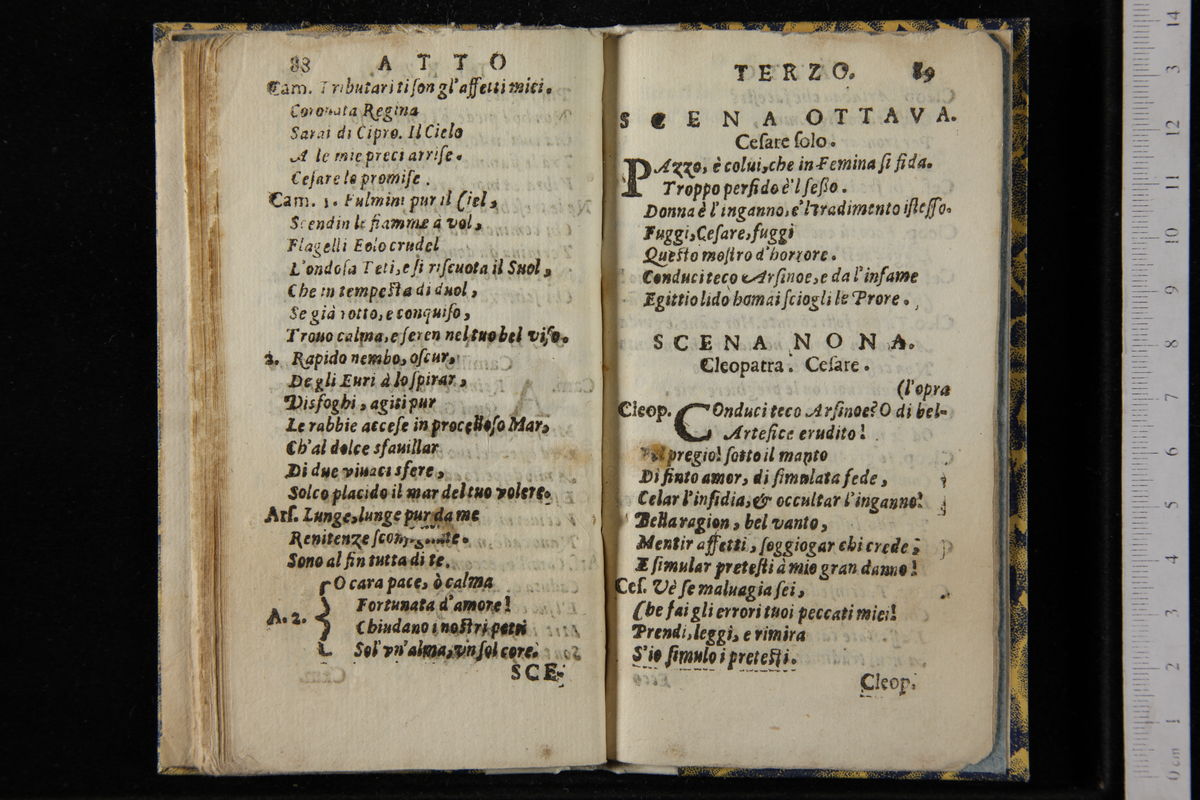 88 ATTO
Cam. Tributari ti ſon gl'affetti miei.
Coronata Regina
Sarai di Cipro. Il Cielo
A le mie preci arriſe.
Ceſare lo promiſe.
Cam. 1. Fulmini pur il Ciel,
Scendin le fiamme a vol,
Flagelli Eolo crudel
L'ondoſa Teti, e ſi riſcuota il Suol,
Che in tempeſta di duol,
Se già rotto, e conquiſo,
Trouo calma, e ſeren nel tuo bel viſo.
2. Rapido nembo, oſcur,
De gli Euri à lo ſpirar,
Disfoghi, agiti pur
Le rabbie acceſe in procelloſo Mar,
Ch'al dolce sfauillar
Di due viuaci sfere,
Solco placido il mar del tuo volere.
Arſ. Lunge, lunge pur da me
Renitenze
Sono al fin tutta di te.
O cara pace, ò calma
Fortunata d'amore!
A. 2. Chiudano i noſtri petti
Sol' vn'alma, vn ſol core.
SCE-
TERZO. 89
SCENA OTTAVA.
Ceſare ſolo.
PAzzo, è colui, che in Femina ſi fida.
Troppo perfido è'l ſeſſo.
Donna è l'inganno, e'l tradimento iſteſſo.
Fuggi, Ceſare, fuggi
Queſto moſtro d'horrore.
Conduci teco Arſinoe, e da l'infame
Egittio lido homai ſciogli le Prore.
SCENA NONA.
Cleopatra. Ceſare.
(l'opra
Cleop. COnduci teco Arſinoe? O di bel-
Artefice erudito!
pregio! ſotto il manto
Di finto amor, di ſimulata fede,
Celar l'inſidia, & occultar l'inganno!
Bella ragion, bel vanto,
Mentir affetti, ſoggiogar chi crede;
E ſimular preteſti à mio gran danno!
Ceſ. Vè ſe maluagia ſei,
Che fai gli errori tuoi peccati miei!
Prendi, leggi, e rimira
S'io ſimulo i preteſti.
Cleop.